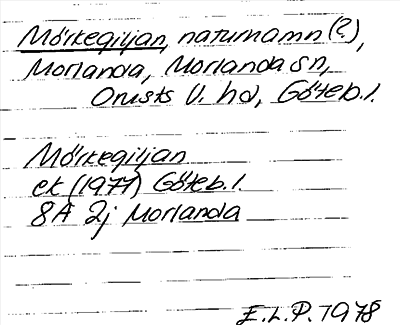 Mörkegiljan, naturnamn (?),
Morlanda, Morlanda sn,
Orusts V. hd, Göteb. l.
Mörkegiljan
ek (1977) Göteb. l.
8A 2j Morlanda
E.L.P. 1978